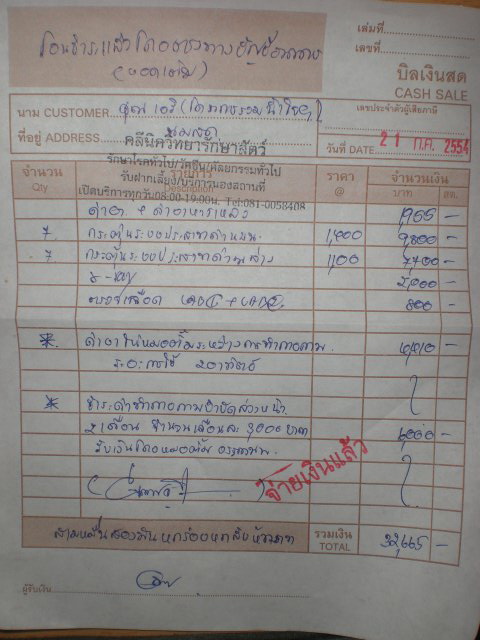 เล่มที่
โอนชำระแล้วโดยตรงทางบัญชีธนาคาร
เลขที่
(ยอดเต็ม)
บิลเงินสด
CASH SALE
นาม CUSTOMER
เลขประจำตัวผู้เสียภาษี
ที่อยู่ ADDRESS
คลีนิควิทยารักษาสัตว์
วันที่ DATE 21 ก.ค. 2554
รักษาโรคทั่วไป/วัคซีน/ศัลยกรรมทั่วไป
รับฝากเลี้ยง/บริการนอกสถานที่
เปิดบริการทุกวัน08:00-19:00น. Tel:081-0058408
จำนวน Qty รายการ Description ราคา @ จำนวนเงิน บาท สต.
ค่ายา + ค่าอาหารเหลว 1,955 -
7 กระตุ้นระบบประสาทด้านบน 1,400 9,800 -
7 กระตุ้นระบบประสาทด้านล่าง 1,100 7,700 -
X-ray 2,000 -
ตรวจเลือด 800 -
* ค่ายา ระหว่างการทำกายภาพ -
* ชำระค่าทำกายภาพบำบัดล่วงหน้า
2 เดือน จำนวนเดือนละ 3,000 บาท 6,000 -
จ่ายเงินแล้ว
สามหมื่นสองพันหกร้อยหกสิบห้าบาท รวมเงิน TOTAL 32,665 -
ผู้รับเงิน